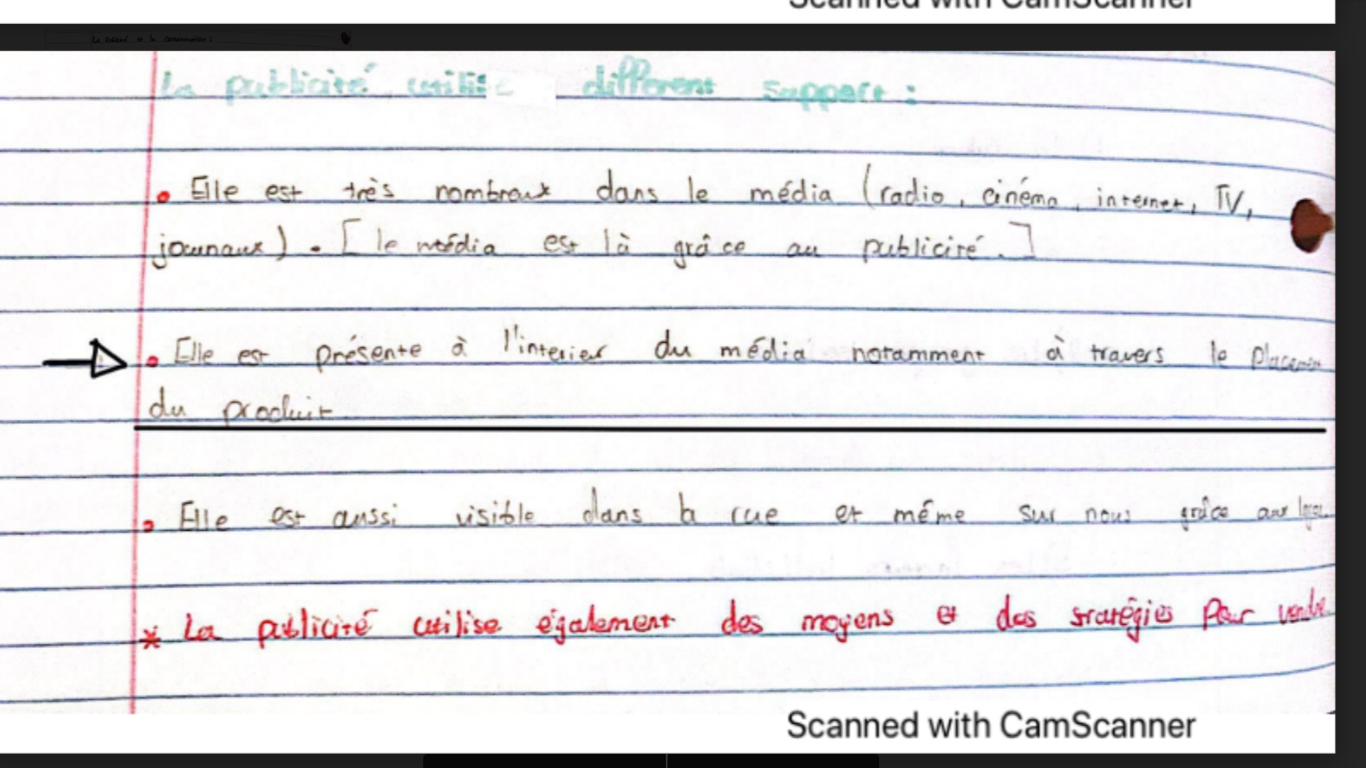 Scanned with CamScanner
La publicité utilise different support :
• Elle est très nombreux dans le média (radio, cinéma, internet, TV,
journaux). [le média est là grâce au publicité.]
• Elle est présente à l'interier du média notamment à travers le placemen
du produit.
• Elle est aussi visible dans la rue et même sur nous grâce aux
* La publicité utilise également des moyens et des stratégies pour vendre
Scanned with CamScanner